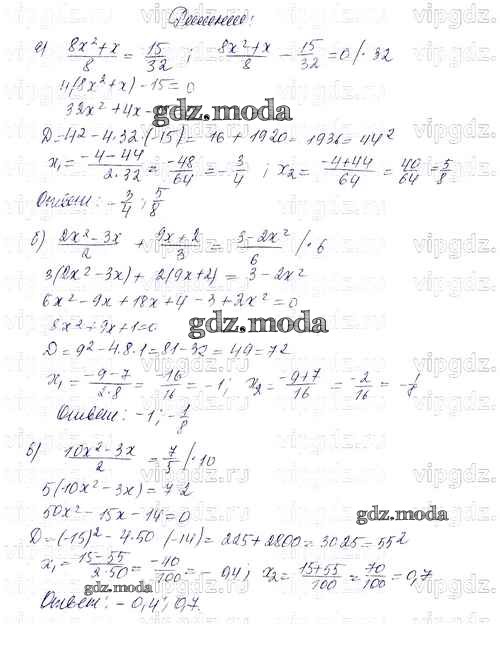 Решение:
а) (8x²+x)/8 = 15/32 ; (8x²+x)/8 − 15/32 = 0 /· 32
4(8x²+x) − 15 = 0
32x² + 4x −
gdz.moda
D = 4² − 4·32·(−15) = 16 + 1920 = 1936 = 44²
x₁ = (−4−44)/(2·32) = −48/64 = −3/4 ; x₂ = (−4+44)/64 = 40/64 = 5/8
Ответ: −3/4 ; 5/8
б) (2x²−3x)/2 + (9x+2)/3 = (3−2x²)/6 /· 6
3(2x²−3x) + 2(9x+2) = 3 − 2x²
6x² − 9x + 18x + 4 − 3 + 2x² = 0
8x² + 9x + 1 = 0
gdz.moda
D = 9² − 4·8·1 = 81 − 32 = 49 = 7²
x₁ = (−9−7)/(2·8) = −16/16 = −1 ; x₂ = (−9+7)/16 = −2/16 = −1/8
Ответ: −1 ; −1/8
в) (10x²−3x)/2 = 7/5 /·10
5(10x² − 3x) = 7·2
50x² − 15x − 14 = 0
gdz.moda
D = (−15)² − 4·50·(−14) = 225 + 2800 = 3025 = 55²
x₁ = (15−55)/(2·50) = −40/100 = −0,4 ; x₂ = (15+55)/100 = 70/100 = 0,7
gdz.moda
Ответ: −0,4 ; 0,7.
vipgdz.ru